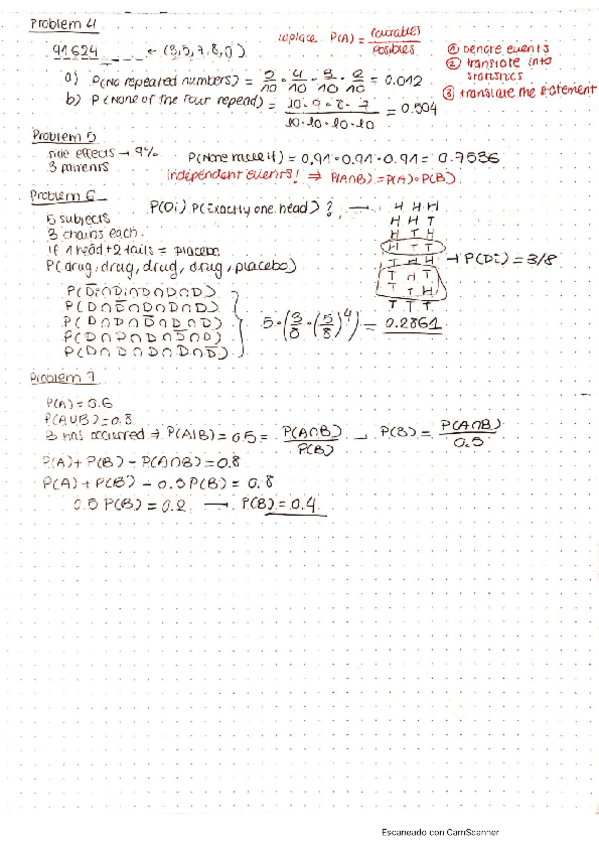 Problem 4
replace P(A) = favorables / posibles
91624 _ _ _ _ ← (3,5,7,8,0)
① denote events
② translate into statistics
③ translate the statement
a) P(No repeated numbers) = 5/10 · 4/10 · 3/10 · 2/10 = 0.012
b) P(None of the four repead) = 10·9·8·7 / 10·10·10·10 = 0.504
Problem 5
side effects → 9%
3 patients
P(None have it) = 0,91·0.91·0.91 = 0.7536
independent events! ⇒ P(A∩B) = P(A)·P(B).
Problem 6
P(Di) P(Exactly one head)? →
5 subjects
3 chains each.
if 1 head + 2 tails = placebo
P(drug, drug, drug, drug, placebo)
H H H
H H T
H T H
H T T
T H H
T H T
T T H
T T T
→ P(Di) = 3/8
P(D̅∩D∩D∩D∩D)
P(D∩D̅∩D∩D∩D)
P(D∩D∩D̅∩D∩D)
P(D∩D∩D∩D̅∩D)
P(D∩D∩D∩D∩D̅)
5·(3/8·(5/8)⁴) = 0.2861
Problem 7
P(A) = 0.6
P(A∪B) = 0.8
B has occurred ⇒ P(A|B) = 0.5 = P(A∩B) / P(B) → P(B) = P(A∩B) / 0.5
P(A) + P(B) - P(A∩B) = 0.8
P(A) + P(B) - 0.5 P(B) = 0.8
0.5 P(B) = 0.2 → P(B) = 0.4
Escaneado con CamScanner